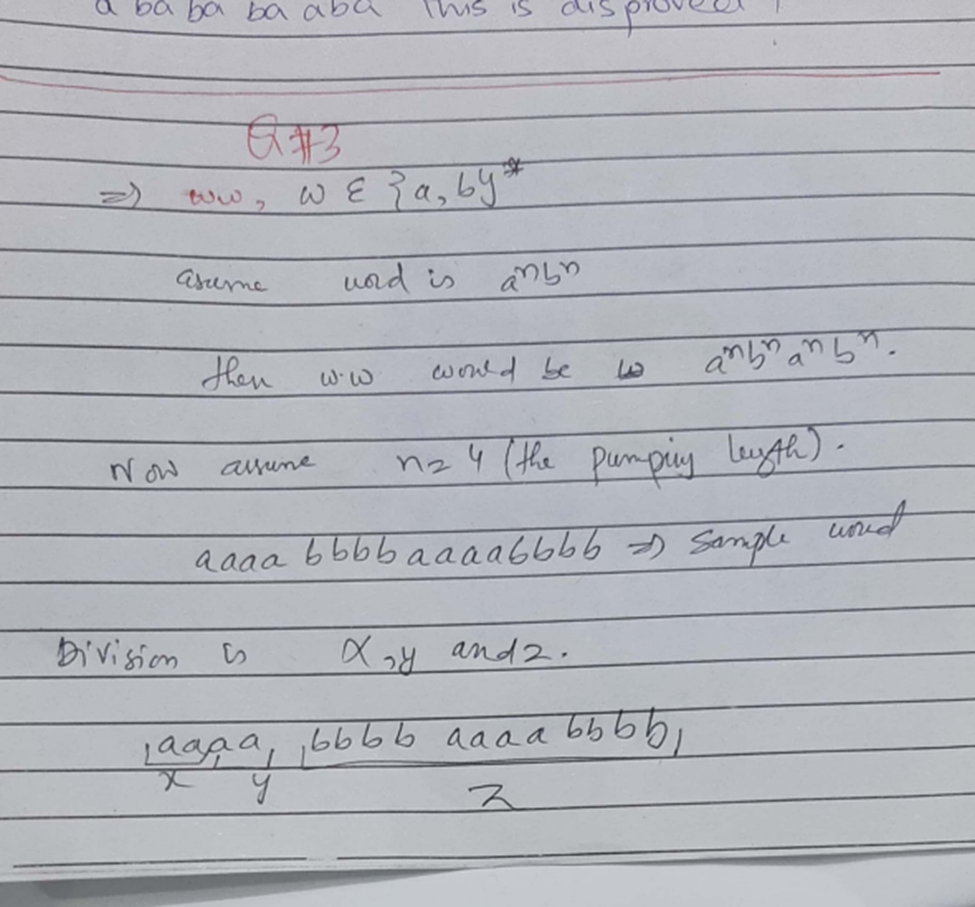 a ba ba ba aba This is disproved
Q#3
=> ww, w ε {a, b}*
assume word is aⁿbⁿ
then w.w would be aⁿbⁿaⁿbⁿ.
Now assume n=4 (the pumping length).
aaaa bbbb aaaabbbb => Sample word
Division is x,y and z.
aaaa bbbb aaaa bbbb
x y z